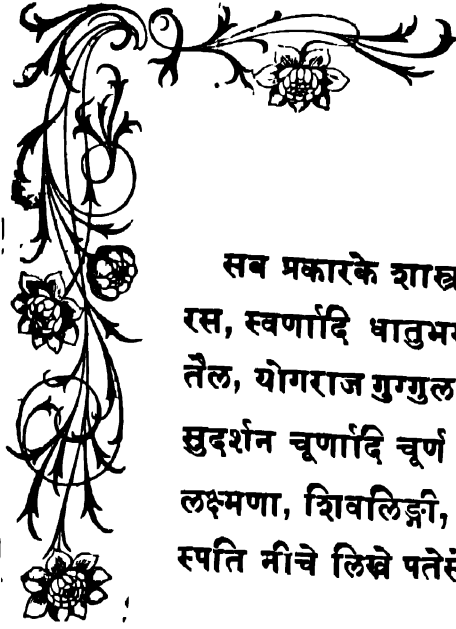 सब प्रकारके शास्त्र
रस, स्वर्णादि धातुभ
तैल, योगराज गुग्गुल
सुदर्शन चूर्णादि चूर्ण
लक्ष्मणा, शिवलिङ्गी,
स्पति नीचे लिखे पतेसे